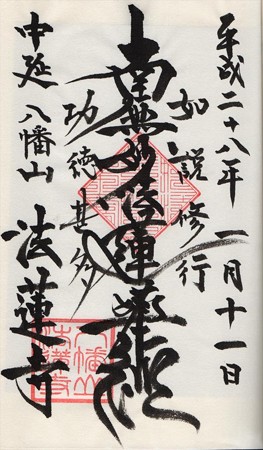 平成二十八年 二月十一日
如説修行
南無妙法蓮華経
功徳甚多
中延 八幡山 法蓮寺
八幡山
法蓮寺